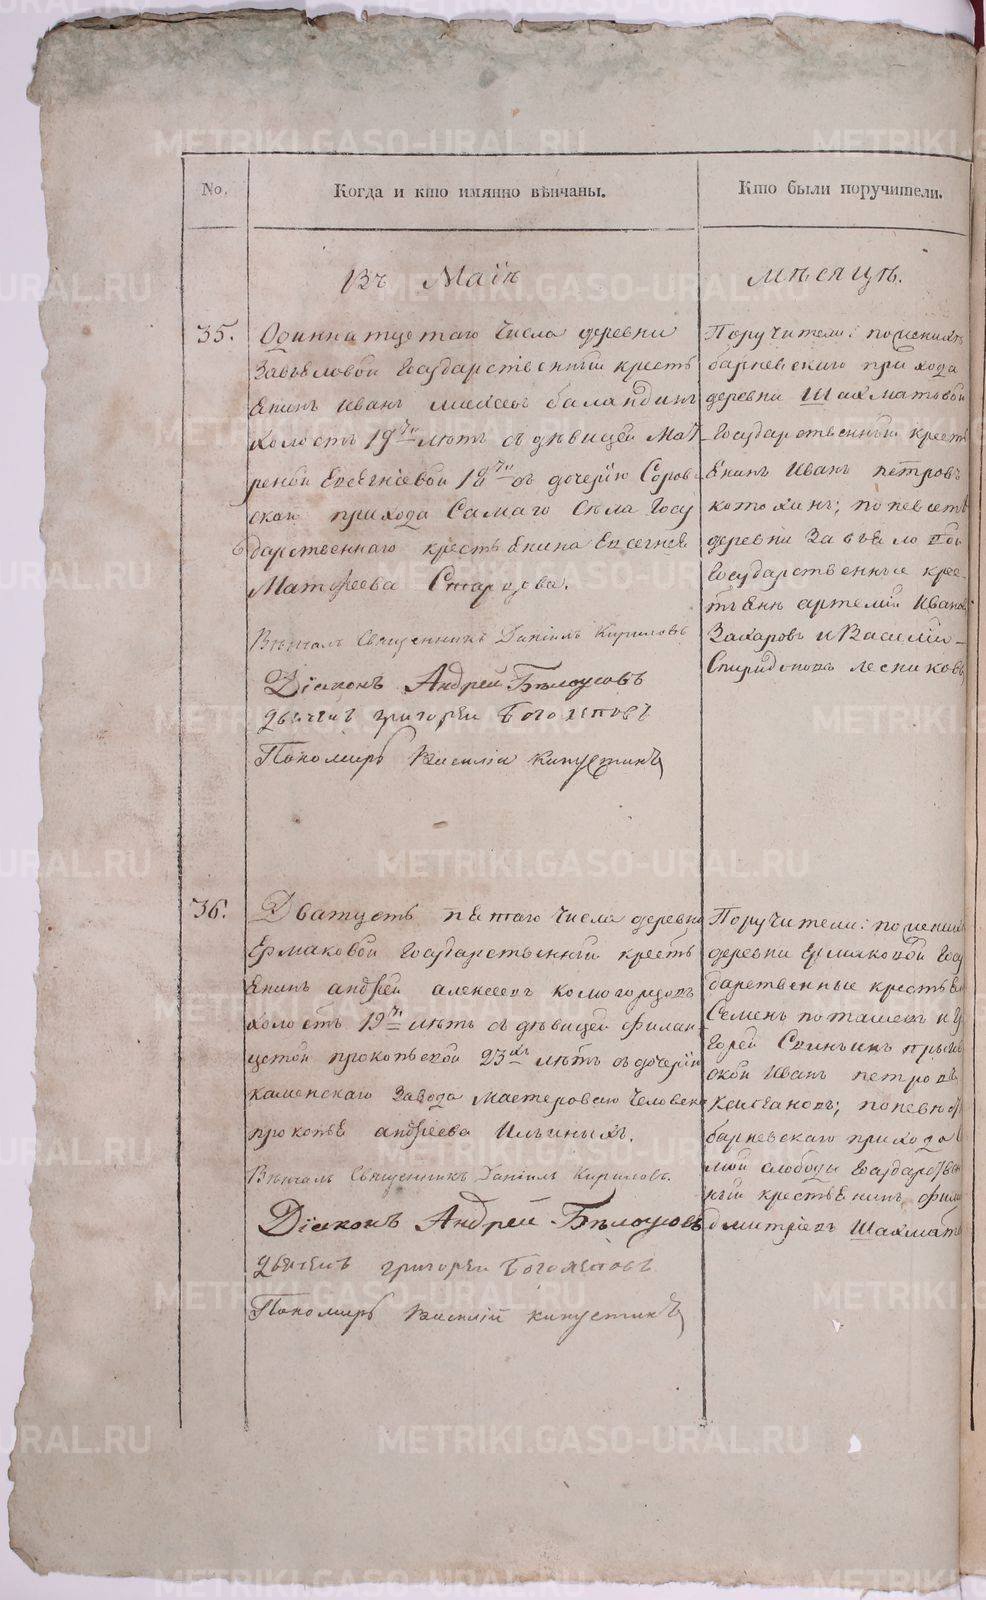 No.
Когда и кто имянно вѣнчаны.
Кто были поручители.
Въ Маiѣ
мѣсяцѣ.
35.
Одиннатцетаго числа деревни
Завьяловой Государственный кресть
янинъ Иванъ баландинъ
холостъ 19ти лѣтъ съ дѣвицей Мат
реной Евсегнѣевой 18ти съ дочерiю Соров
скаго прихода Самаго села Госу
дарственнаго крестьянина Евсегнѣя
Матфеева Стародова.
Вѣнчалъ Священникъ Данiилъ Кириловъ
Дiяконъ Андрей Бѣлоусовъ
дьячекъ григорей Боголеповъ
Пономарь Василiй капустинъ
Поручители: по женихѣ
барневскаго прихода
деревни Шахматовой
Государственный кресть
янинъ Иванъ петровъ
котохинъ; по невестѣ
деревни Завьяловой
Государственные крес
тьяне артемiй Иванов
Захаровъ и Василiй
Спиридоновъ лесниковъ
36.
Дватцеть пятаго числа деревни
Ермаковой Государственный кресть
янинъ андрей алексеевъ комогорцовъ
холостъ 19ти лѣтъ съ дѣвицей филан
цетой прокопьевой 23хъ лѣтъ съ дочерiю
каменскаго Завода мастероваго человека
прокопья андреева Ильиныхъ.
Вѣнчалъ Священникъ Данiилъ Кириловъ.
Дiяконъ Андрей Бѣлоусовъ
дьячекъ григорей Боголеповъ
Пономарь Василiй капустинъ
Поручители: по женихѣ
деревни Ермаковой Госу
дарственные крестьян
Семенъ потапевъ и гри
горей
Иванъ петровъ
по невест
барневскаго прихода
мой слободы Государствен
ный крестьянинъ фили
дмитрiевъ Шахмат
METRIKI.GASO-URAL.RU